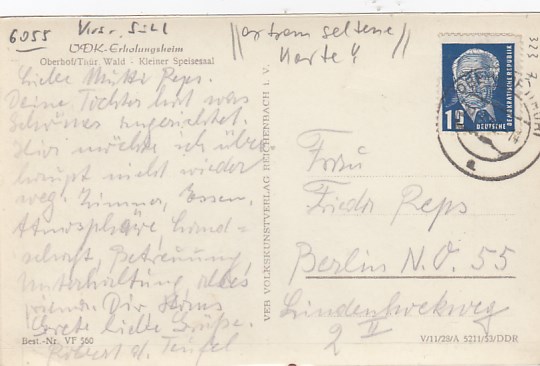 6055 Krs. Suhl
//extrem seltene
Karte!//
323
VDK-Erholungsheim
Oberhof/Thür. Wald · Kleiner Speisesaal
Liebe Mutti Reps.
Deine Tochter hat was
Schönes angerichtet.
Hier möchte ich über-
haupt nicht wieder
weg. Zimmer, Essen,
Atmosphäre, Land-
schaft, Betreuung,
Unterhaltung, alles
prima. Dir
liebe Grüße.
Robert d. Teufel
Best.-Nr. VF 560
VEB VOLKSKUNSTVERLAG REICHENBACH i. V.
DEUTSCHE DEMOKRATISCHE REPUBLIK
Frau
Frieda Reps
Berlin N.O. 55
2 II
V/11/29/A 5211/53/DDR